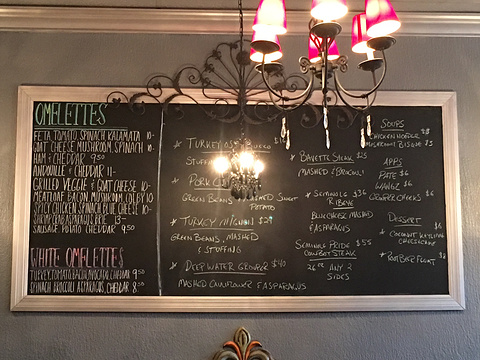 OMELETTES
FETA, TOMATO, SPINACH, KALAMATA 10-
GOAT CHEESE, MUSHROOM, SPINACH 10-
HAM & CHEDDAR 9.50
ANDOUILLE & CHEDDAR 11-
GRILLED VEGGIE & GOAT CHEESE 10-
MEATLOAF, BACON, MUSHROOM, COLBY 10
SPICY CHICKEN, SPINACH, BLUE CHEESE 10-
ASPARAGUS, BRIE 13-
SAUSAGE POTATO CHEDDAR 9.50
WHITE OMELETTES
TURKEY, TOMATO, BACON, AVOCADO, CHEDDAR 9.50
SPINACH BROCCOLI ASPARAGUS, CHEDDAR 8.50
* TURKEY
STUFFING
* PORK
GREEN BEANS, MASHED SWEET
POTATO
* TURKEY MIGNON $29
GREEN BEANS, MASHED
& STUFFING
* DEEP WATER GROUPER $40
MASHED CAULIFLOWER & ASPARAGUS
* BAVETTE STEAK $25
MASHED & BROCCOLI
* SEMINOLE $36
RIBEYE
BLUE CHEESE MASHED
& ASPARAGUS
SEMINOLE PRIDE $55
COWBOY STEAK
26oz ANY 2
SIDES
SOUPS
CHICKEN NOODLE
MUSHROOM BISQUE
APPS
PATE $6
WINGZ $6
DESSERT
* COCONUT
CHEESECAKE
* ROOTBEER FLOAT